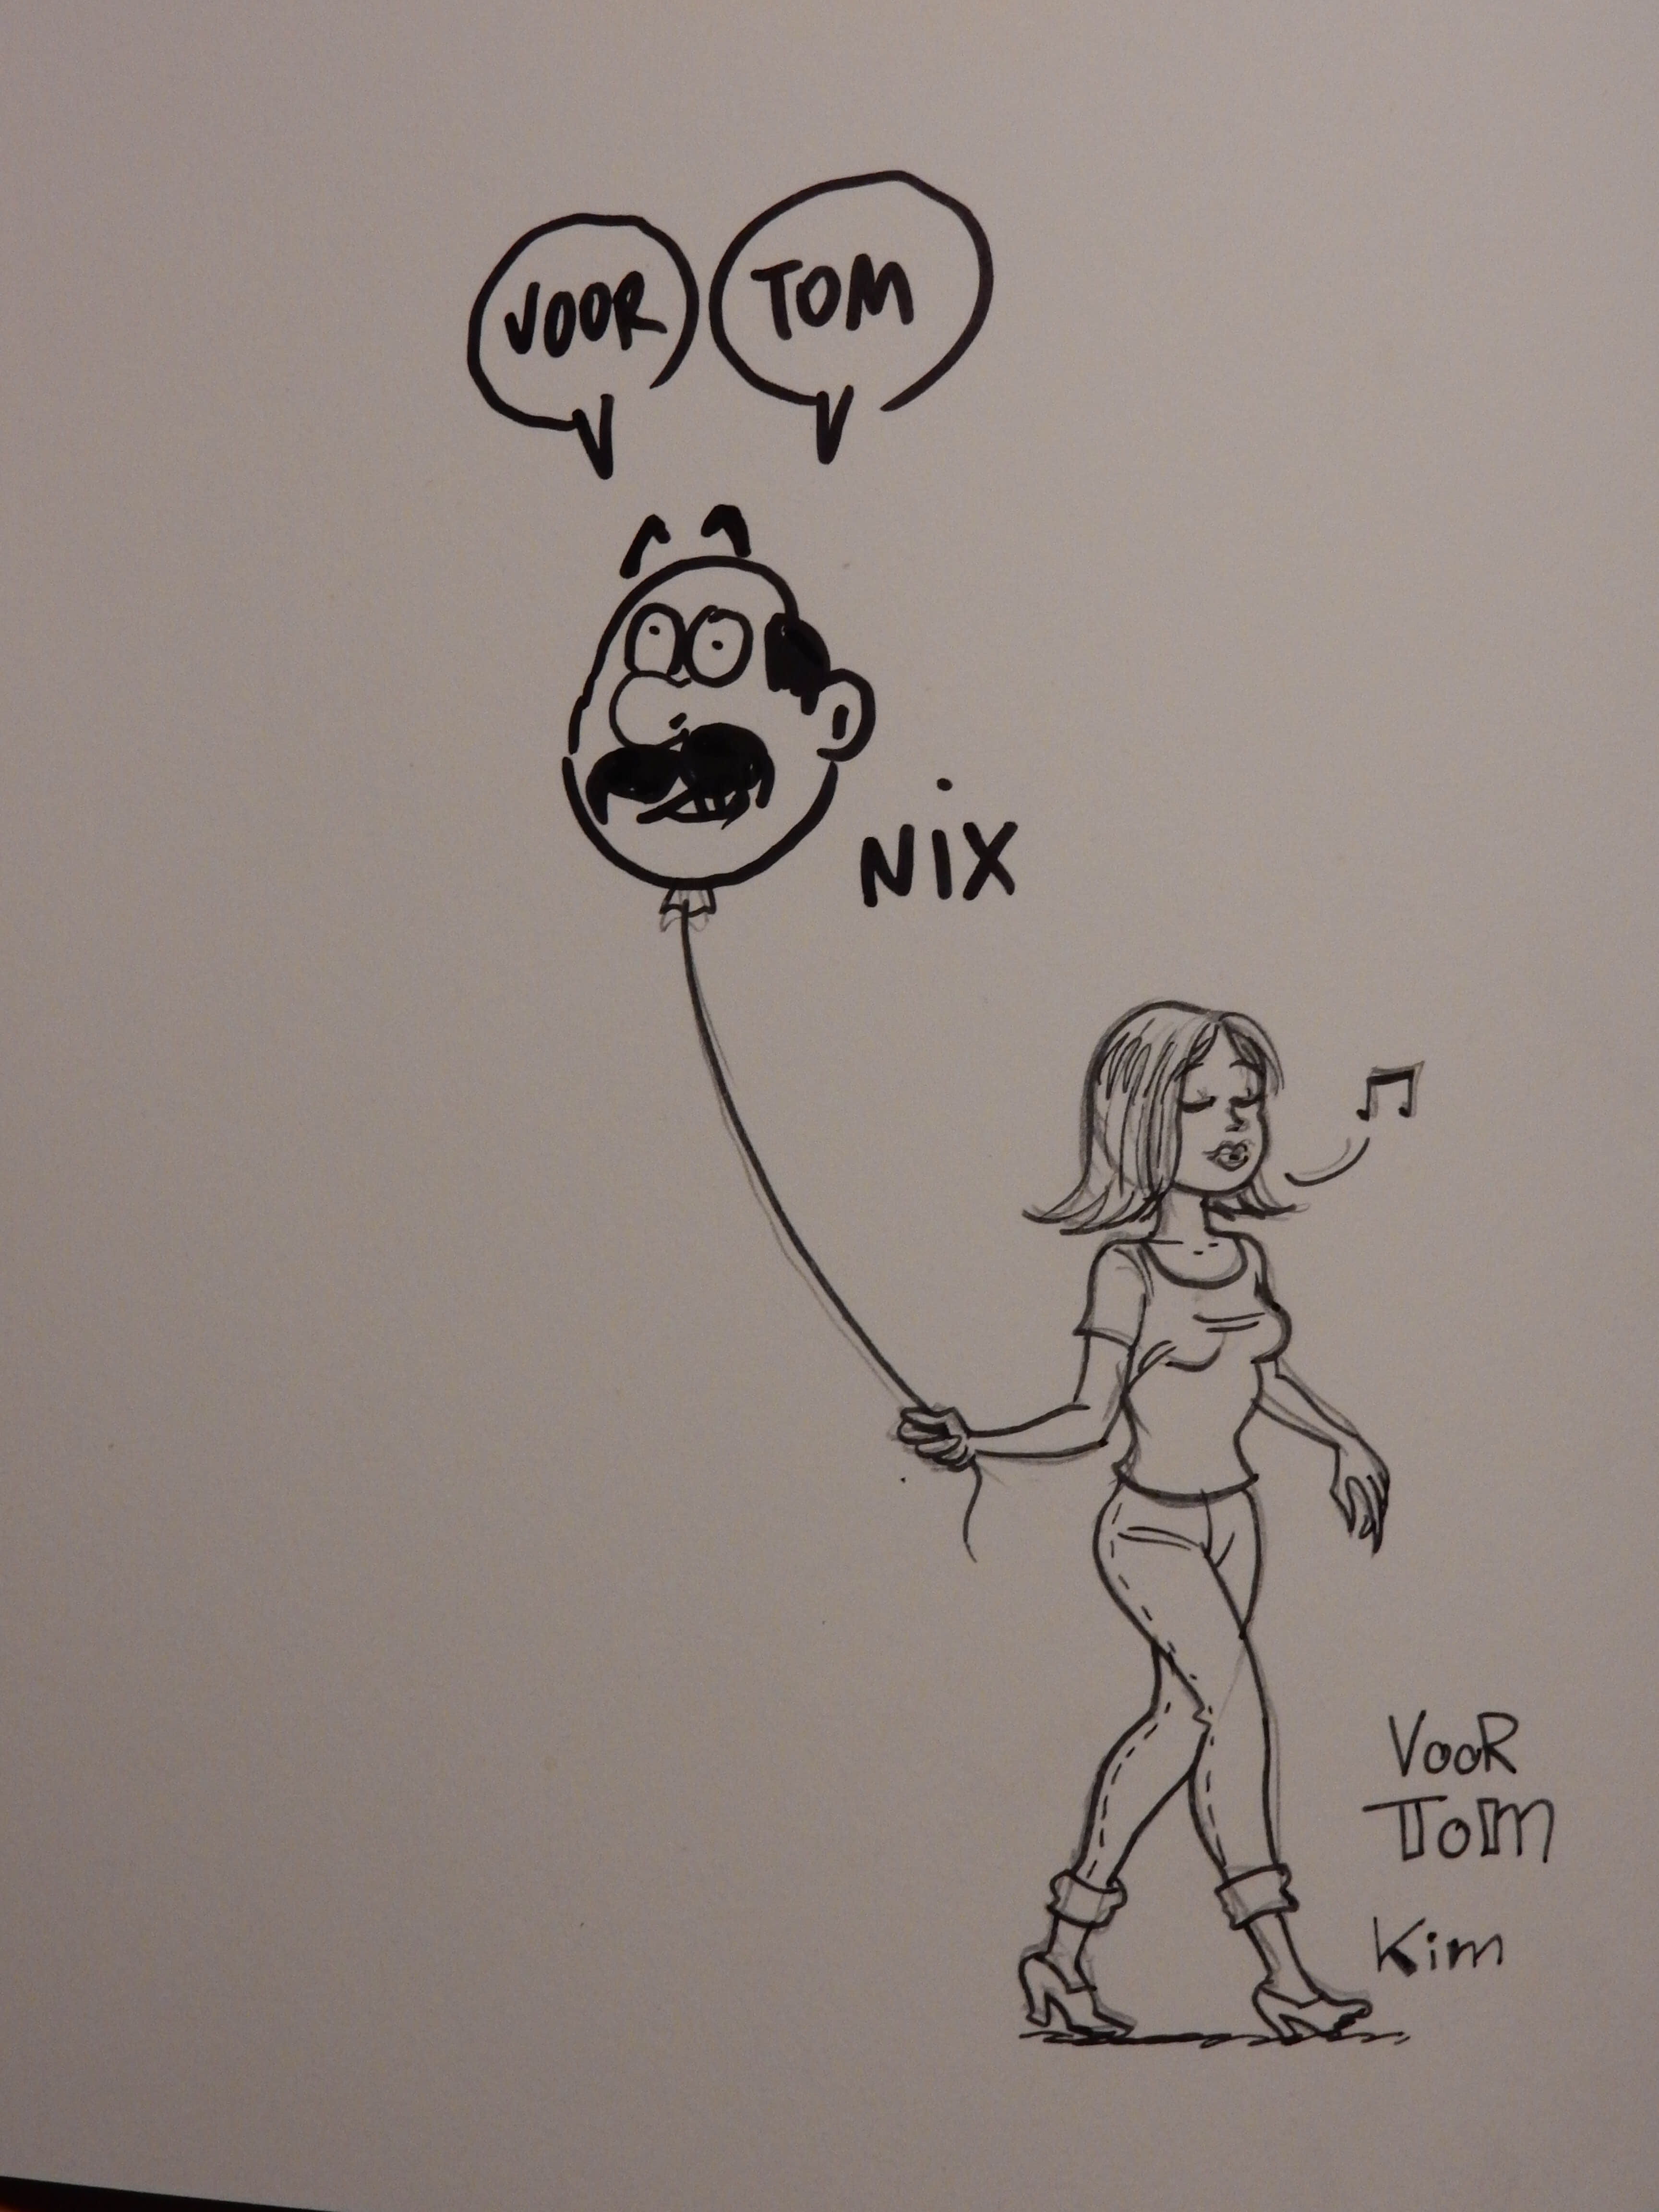 VOOR
TOM
NiX
VOOR
TOM
Kim